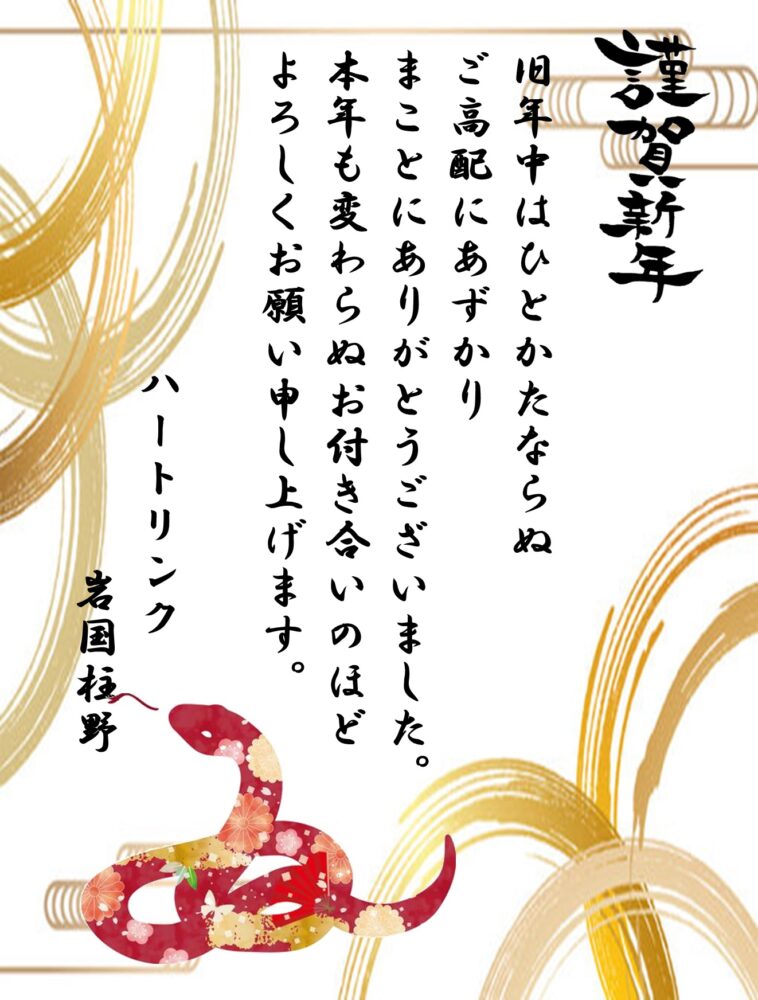 謹賀新年
旧年中はひとかたならぬ
ご高配にあずかり
まことにありがとうございました。
本年も変わらぬお付き合いのほど
よろしくお願い申し上げます。
ハートリンク
岩国柱野